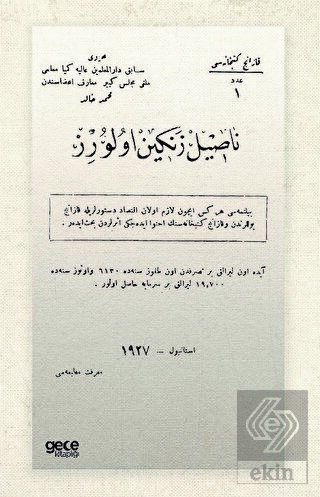 قازانج كتبخانه‌سى
عدد
١
محررى
سابق دارالمعلمين عاليه كيميا معلمى
ملغى مجلس كبير معارف اعضاسندن
محمد خالد
ناصيل زنكين اولورز
بيلنمه‌سى هر كس ايچون لازم اولان اقتصاد دستورلريله قازانج
يوللرندن وقازانج كتبخانه‌سنك احتوا ايده‌جكى اثرلردن بحث ايدر.
آيده اون ليرالق بر تصرفدن اون طقوز سنه‌ده ٦١٣٠ واوتوز سنه‌ده
١٩,٧٠٠ ليرالق بر سرمايه حاصل اولور.
استانبول — ١٩٢٧
معرفت مطبعه‌سى
gece
kitaplığı
ekin